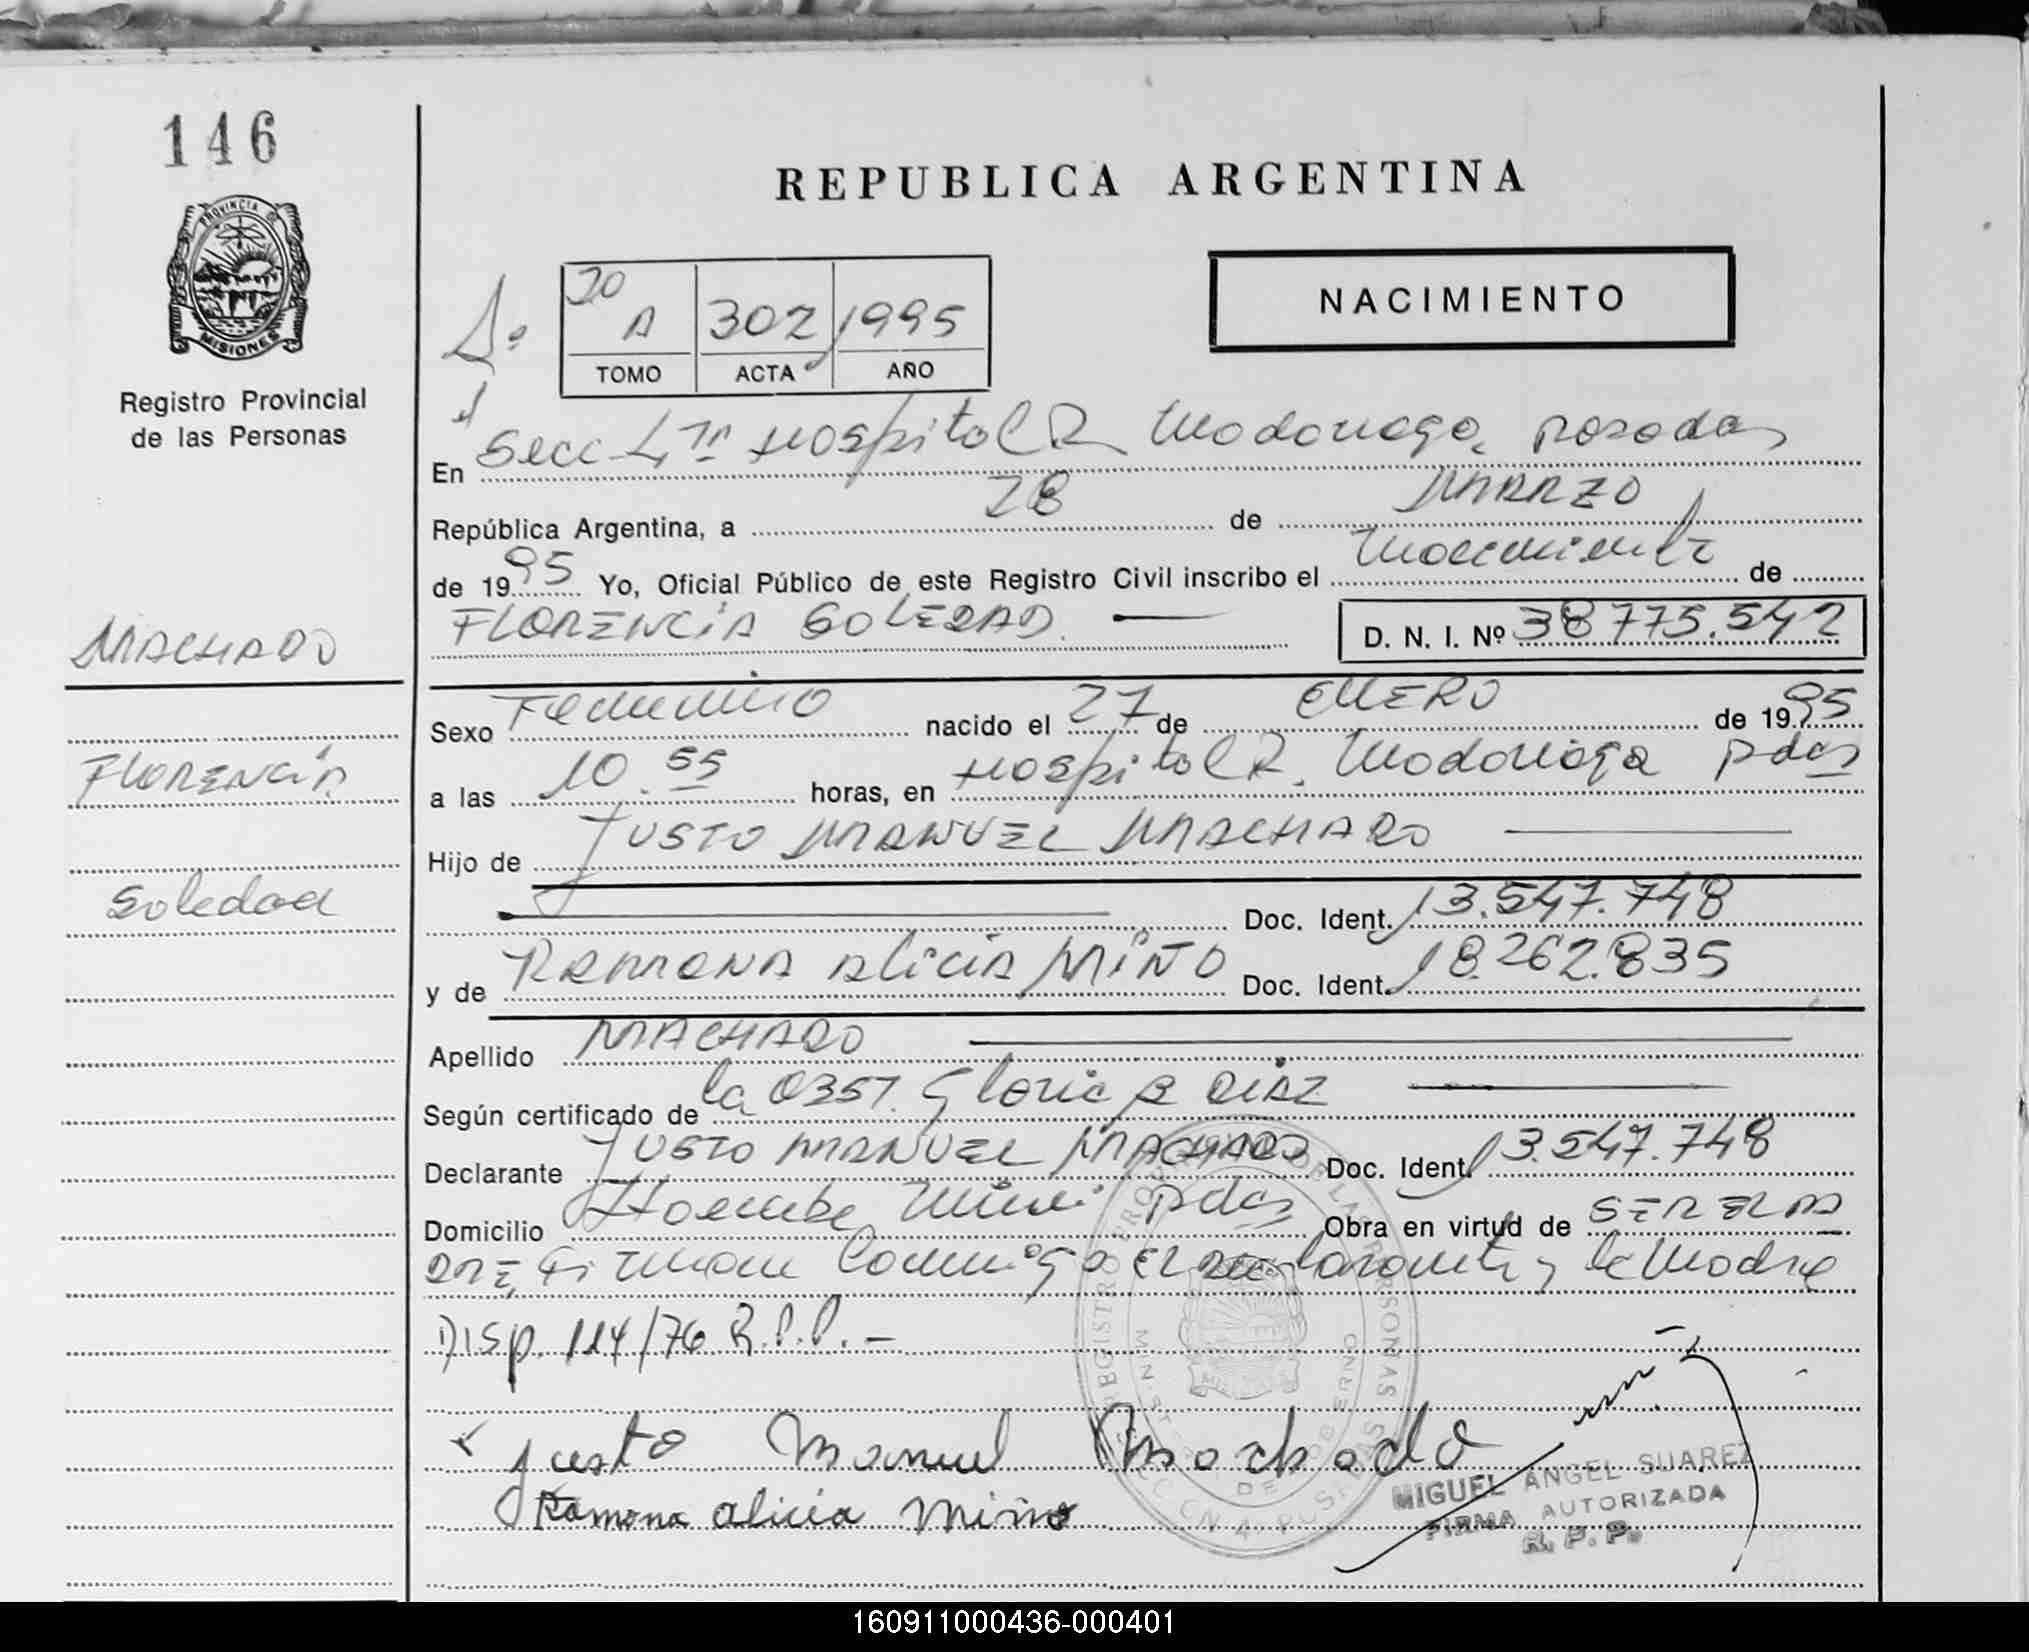 146
PROVINCIA DE
MISIONES
Registro Provincial
de las Personas
MACHADO
FLORENCIA
Soledad
REPUBLICA ARGENTINA
NACIMIENTO
20
A 302 1995
TOMO ACTA AÑO
En Secc 4ta Hospital R Madariaga posadas
República Argentina, a 28 de MARZO
de 1995 Yo, Oficial Público de este Registro Civil inscribo el Nacimiento de
FLORENCIA SOLEDAD. D. N. I. Nº 38775.542
Sexo Femenino nacido el 27 de ENERO de 1995
a las 10.55 horas, en Hospital R. Madariaga pdas
Hijo de JUSTO MANUEL MACHADO
Doc. Ident. 13.547.748
y de RAMONA ALICIA MIÑO Doc. Ident. 18.262.835
Apellido MACHADO
Según certificado de la 0357. Gloria B DIAZ
Declarante JUSTO MANUEL MACHADO Doc. Ident. 13.547.748
Domicilio Itaembe Mini pdas Obra en virtud de SER EL PA
DRE, Firman Conmigo El declarante y la Madre
Disp. 114/76 R.P.P. -
Justo Manuel Machado
Ramona alicia Miño
MIGUEL ANGEL SUAREZ
FIRMA AUTORIZADA
R. P. P.
160911000436-000401